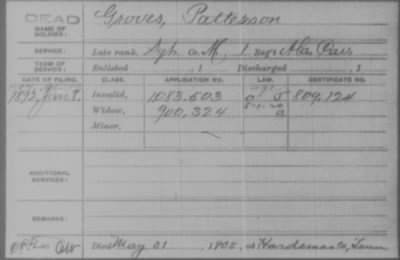 DEAD
Groves, Patterson
NAME OF SOLDIER:
SERVICE: Late rank, Sgt. Co. M, 1 Reg't Ala Cav
TERM OF SERVICE: Enlisted , 1 Discharged , 1
DATE OF FILING. CLASS. APPLICATION NO. LAW. CERTIFICATE NO.
1893, Jan. 8, Invalid, 1083.503 809.124
Widow, 900,324
Minor,
ADDITIONAL SERVICES:
REMARKS:
Died May 31, 1905, at Hardeman Co, Tenn